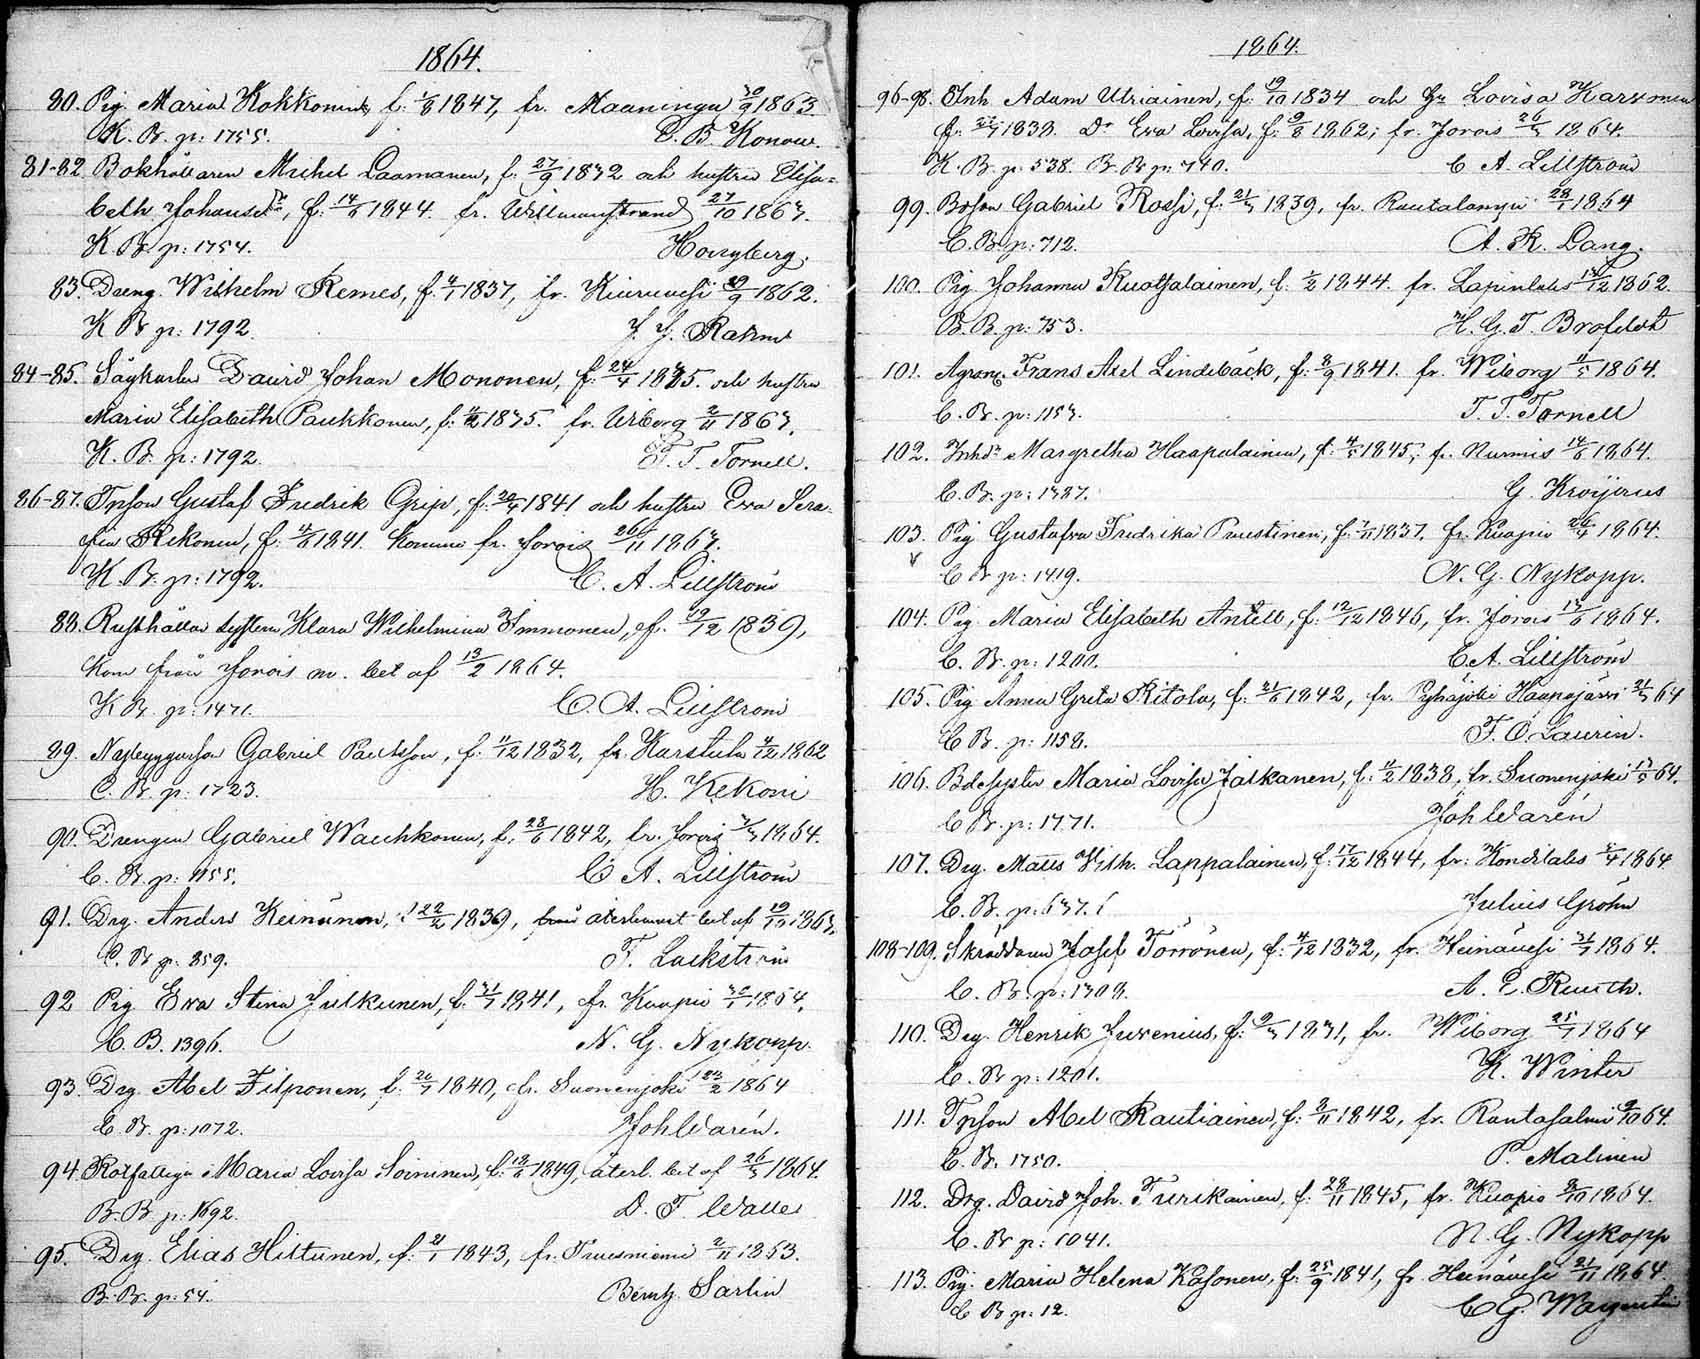 1864.
80. Pig. Maria Kokkonen, f. 1/8 1847, fr. Maaninga 30/9 1863.
K. B. p: 1755. C. B. Konow.
81-82 Bokhållaren Michel Daamanen, f. 27/9 1832 och hustru Elisa=
beth Johansd:r, f. 14/6 1844. fr. Willmanstrand 27/10 1863.
K. B. p: 1754. Hougberg.
83. Dreng. Wilhelm Remes, f. 4/1 1837, fr. Kiuruvesi 29/9 1862.
K B p: 1792. J. J. Rahm
84-85. Sågkarlen David Johan Mononen, f. 24/4 1835. och hustru
Maria Elisabeth Paukkonen, f. 1835. fr. Wiborg 2/11 1863.
K. B. p: 1792. T. T. Tornell.
86-87. Inhson Gustaf Fredrik Grip, f. 20/4 1841 och hustru Eva Sera-
fia Rekonen, f. 4/6 1841. komna fr. Jorois 26/11 1863.
K. B. p: 1792. C. A. Lillström
88. Rusthålla systern Klara Wilhelmina Immonen, f. 19/12 1839,
kom från Jorois m. bet af 13/2 1864.
K B. p: 1471. C. A. Lillström
89. Nybyggarson Gabriel Paulsson, f. 11/12 1832, fr. Karstula 4/12 1862
C. B. p: 1723. H. Kekoni
90. Drengen Gabriel Wauhkonen, f. 28/6 1842, fr. Jorois 3/3 1864.
C. B. p: 1155. C A. Lillström
91. Drg. Anders Keinänen, f. 22/2 1839, återkommit bet af 19/10 1863.
C. B p: 859. F. Lackström
92 Pig Eva Stina Julkunen, f. 31/7 1841, fr. Kuopio 30/1 1864.
C. B. 1396. N. G. Nykopp.
93. Drg. Abel Filponen, f. 20/7 1840, fr. Suonenjoki 23/2 1864
C. B. p: 1072. Joh Warén.
94. Rotfattiga Maria Lovisa Soininen, f. 18/6 1849, återk. bet af 26/3 1864.
B. B p: 1692. D. F. Walle
95. Drg. Elias Hiltunen, f. 21/1 1843, fr. Pruesniemi 2/11 1853.
B. B. p: 54. Berntz. Sarlin
1864.
96-98. Enh Adam Utriainen, f. 19/10 1834 och Hu Lovisa Karvonen
f. 1838. Dr Eva Lovisa, f. 9/8 1862; fr. Jorois 26/3 1864.
K. B. p: 538. B. B p: 740. C A. Lillström
99. Boson Gabriel Rossi, f. 21/3 1839, fr. Rautalampi 28/1 1864
C. B. p: 712. A. R. Lang.
100. Pig Johanna Ruotsalainen, f. 1/2 1844. fr. Lapinlaks 14/12 1862.
B. B. p: 753. H. G. T. Brofeldt
101. Agron. Frans Axel Lindebäck, f. 8/9 1841. fr. Wiborg 11/5 1864.
C. B. p: 1153. T. T. Tornell
102. Inhdr Margretha Haapalainen, f. 4/5 1845, fr. Nurmis 14/6 1864.
C. B. p: 1387. G. Kroijerus
103. Pig Gustafva Fredrika Puustinen, f. 7/11 1837. fr. Kuopio 26/4 1864.
C B p: 1419. N. G. Nykopp.
104. Pig. Maria Elisabeth Antell, f. 12/12 1846, fr. Jorois 13/6 1864.
C. B. p: 1200. C A. Lillström
105. Pig Anna Greta Ritola, f. 21/6 1842, fr. Pyhäjoki Haapajärvi 21/3 64
C B. p: 1158. F. O Laurin.
106. Bdesyster Maria Lovisa Jalkanen, f. 11/2 1838, fr. Suonenjoki 13/5 64.
C B. p: 1771. Joh Warén
107. Drg. Matts Wilh. Lappalainen, f. 17/12 1844, fr. Konditaks 5/4 1864
C. B. p: 637. Julius Gröhn
108-109. Skräddaren Josef Törrönen, f. 4/12 1832, fr. Heinävesi 31/7 1864.
C. B. p: 1308. A. E. Ruuth.
110. Drg. Henrik Juvenius, f: 9/3 1831, fr. Wiborg 25/7 1864
C. B p: 1201. K. Winter
111. Inhson Abel Rautiainen, f. 3/11 1842, fr. Rantasalmi 9/10 64.
C. B. 1750. P. Malinen
112. Drg. David Joh. Turikainen, f. 28/11 1845, fr. Kuopio 3/10 1864.
C. B p: 1041. N. G. Nykopp
113. Pig. Maria Helena Kasonen, f: 25/9 1841, fr. Heinävesi 21/11 1864
C B p: 12.